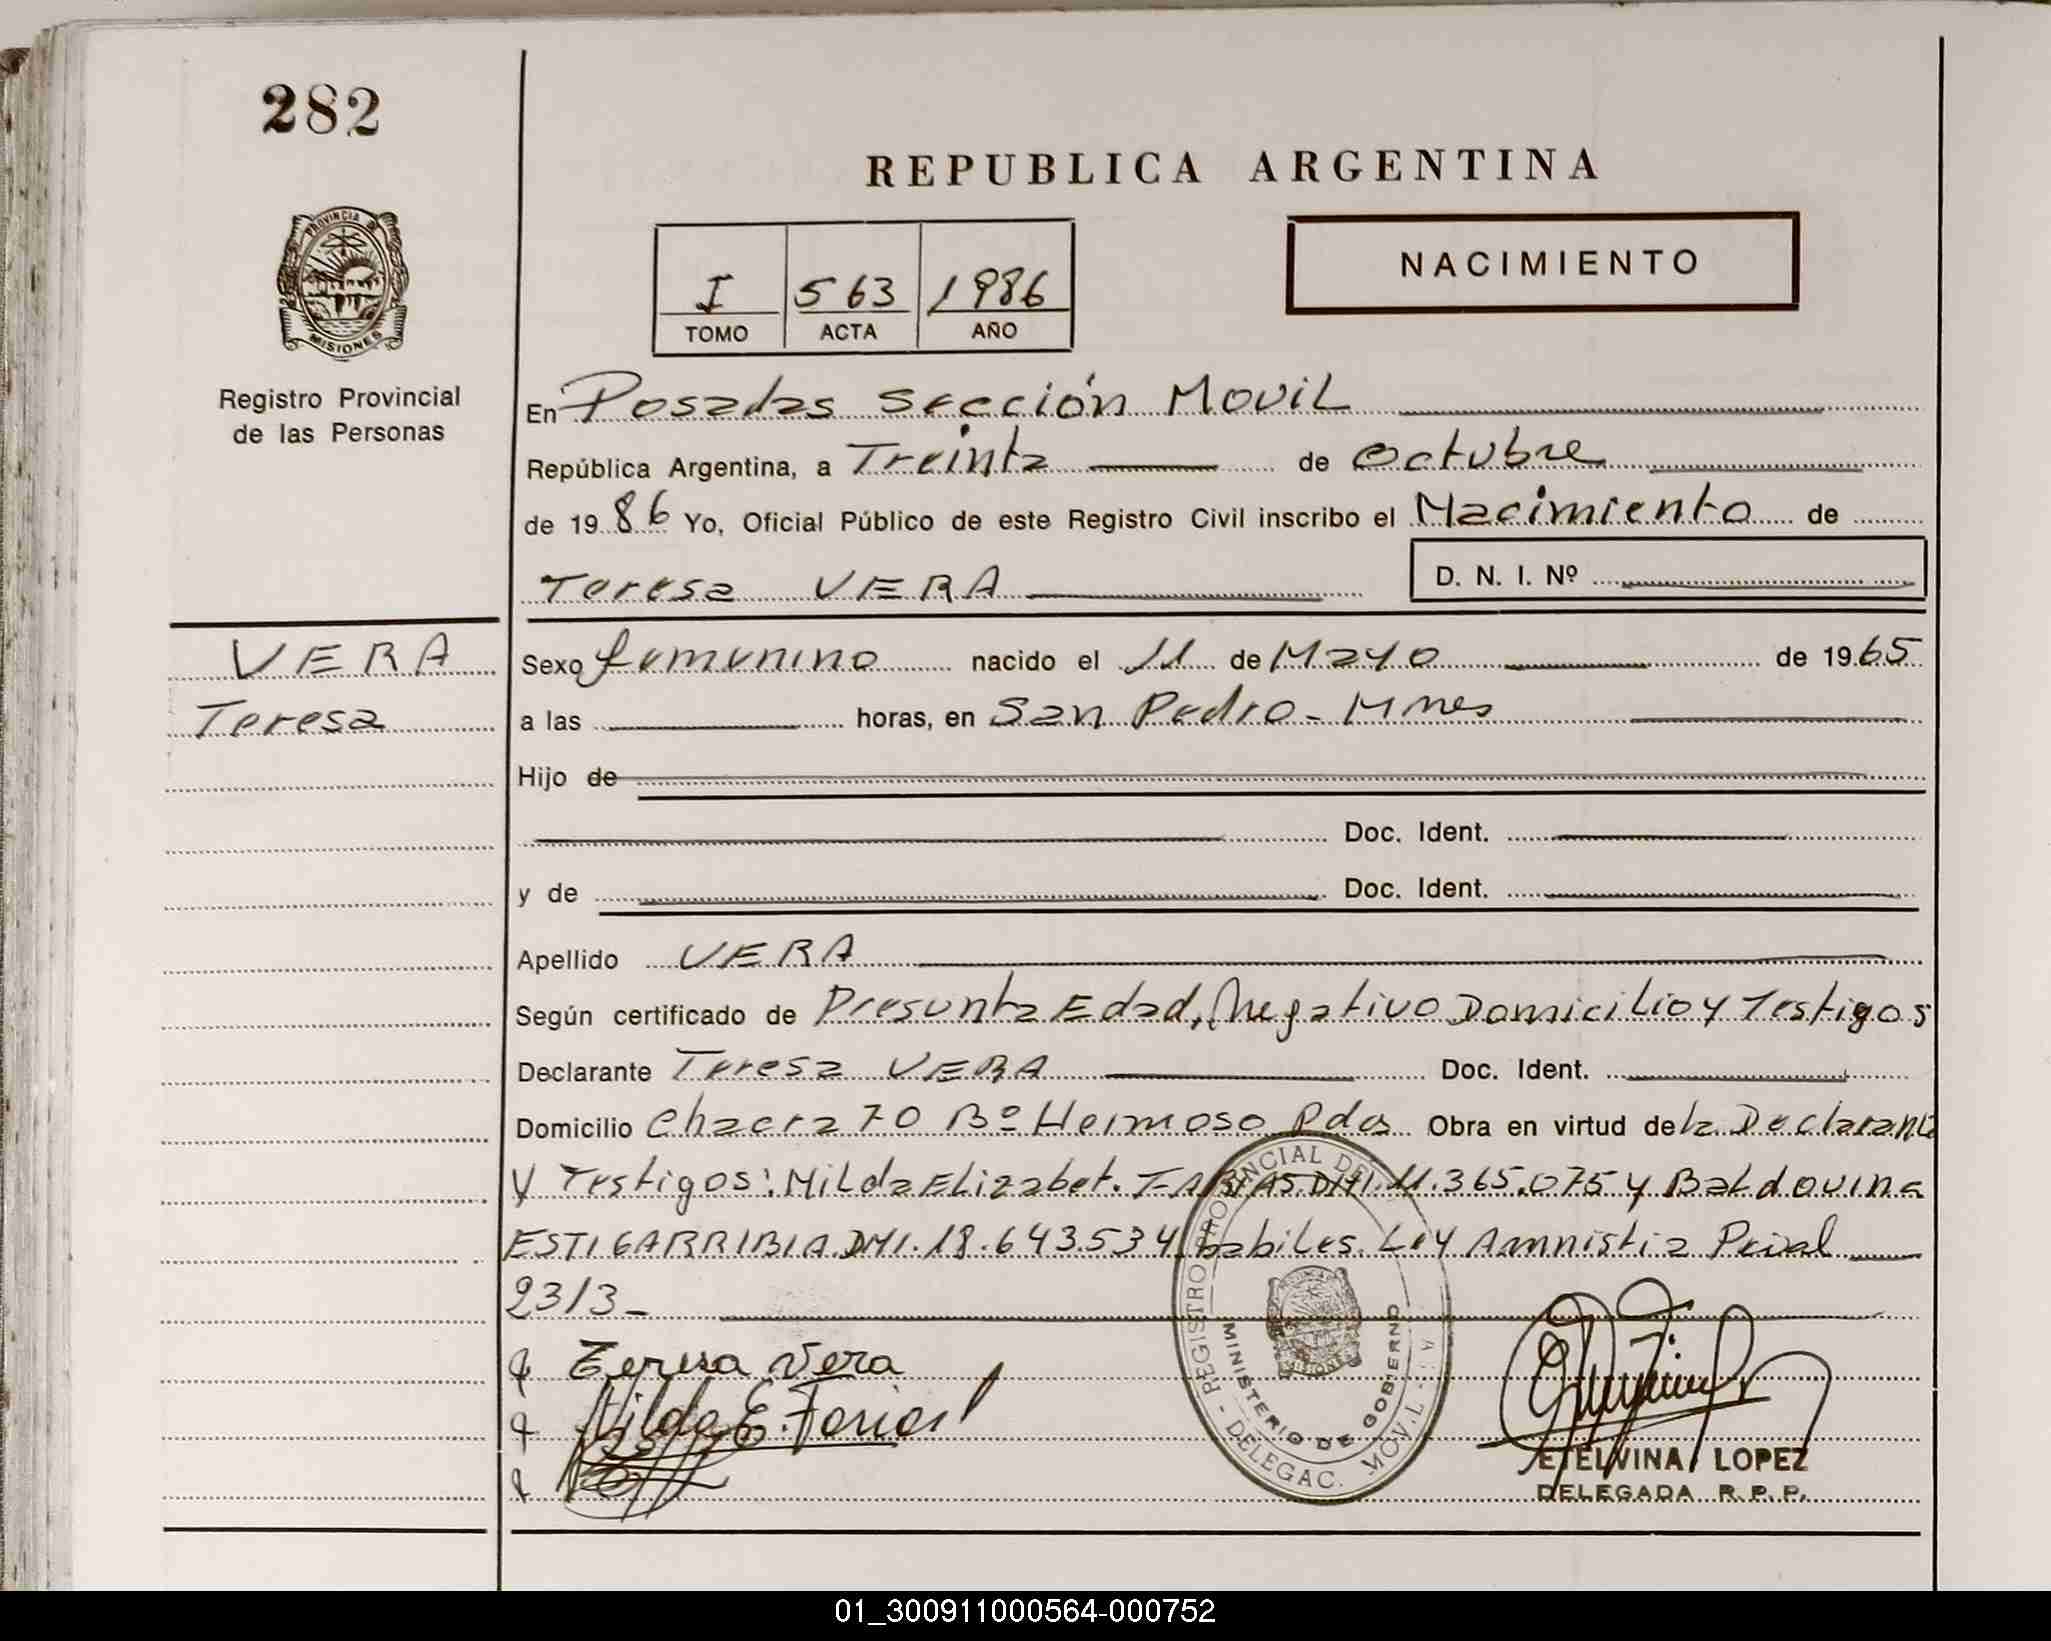 282
REPUBLICA ARGENTINA
PROVINCIA DE
MISIONES
Registro Provincial
de las Personas
I 563 1986
TOMO ACTA AÑO
NACIMIENTO
En Posadas Sección Movil
República Argentina, a Treinta de Octubre
de 1986 Yo, Oficial Público de este Registro Civil inscribo el Nacimiento de
Teresa VERA D. N. I. Nº
VERA
Teresa
Sexo femenino nacido el 11 de Mayo de 1965
a las horas, en San Pedro - Mnes
Hijo de
Doc. Ident.
y de Doc. Ident.
Apellido VERA
Según certificado de Presunta Edad, Negativo Domicilio y Testigos
Declarante Teresa VERA Doc. Ident.
Domicilio Chacra 70 Bº Hermoso Pdas Obra en virtud de la Declarante
y Testigos: Nilda Elizabet. FARIAS DNI. 11.365.075 y Baldovina
ESTIGARRIBIA DNI. 18.643.534 habiles. Ley Amnistia
2313-
Teresa Vera
Nilda E. Farias
REGISTRO PROVINCIAL DE - DELEGAC. MOVIL
MINISTERIO DE GOBIERNO
ETELVINA LOPEZ
DELEGADA R. P. P.
01_300911000564-000752